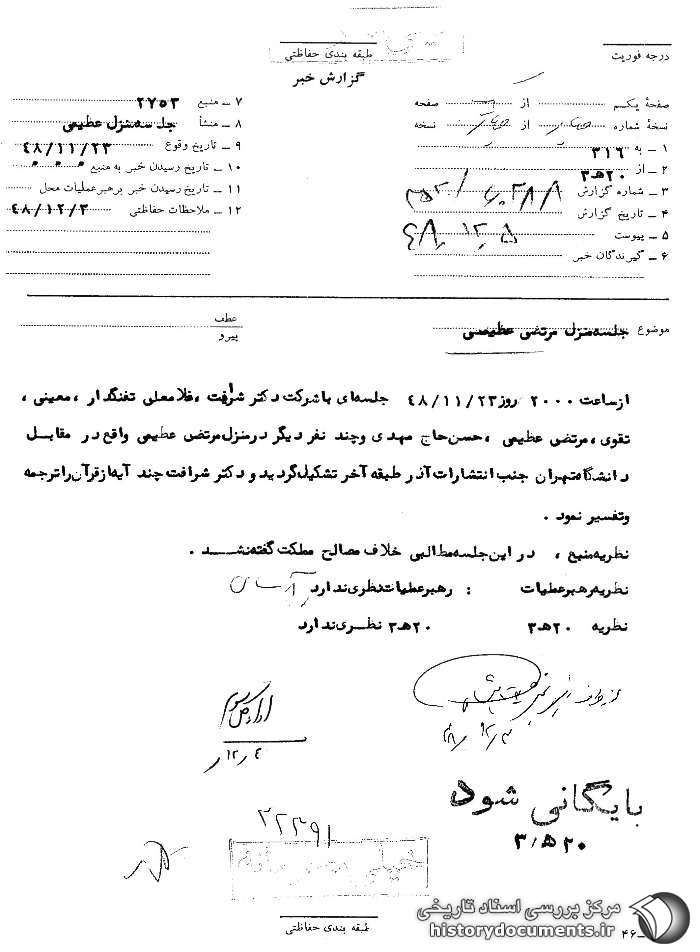 طبقه بندی حفاظتی
گزارش خبر
درجه فوریت
صفحهٔ یکم از صفحه
نسخهٔ شماره از نسخه
۱ ـ به ۳۱۶
۲ ـ از ۲۰هـ۳
۳ ـ شماره گزارش
۴ ـ تاریخ گزارش ۴۸٫۱۲٫۵
۵ ـ پیوست
۶ ـ گیرندگان خبر
۷ ـ منبع ۲۷۵۳
۸ ـ منشأ جلسه منزل عظیمی
۹ ـ تاریخ وقوع ۴۸/۱۱/۲۳
۱۰ ـ تاریخ رسیدن خبر به منبع
۱۱ ـ تاریخ رسیدن خبر برهبر عملیات محل
۱۲ ـ ملاحظات حفاظتی ۴۸/۱۲/۳
موضوع جلسه منزل مرتضی عظیمی
عطف
پیرو
از ساعت ۲۰۰۰ روز ۴۸/۱۱/۲۳ جلسه‌ای با شرکت دکتر شرافت ، غلامعلی تفنگدار ، معینی ،
تقوی ، مرتضی عظیمی ، حسن حاج مهدی و چند نفر دیگر در منزل مرتضی عظیمی واقع در مقابل
دانشگاه تهران جنب انتشارات آذر طبقه آخر تشکیل گردید و دکتر شرافت چند آیه از قرآن را ترجمه
و تفسیر نمود .
نظریه منبع ، در این جلسه مطالبی خلاف مصالح مملکت گفته نشد .
نظریه رهبر عملیات : رهبر عملیات نظری ندارد
نظریه ۲۰هـ۳ ۲۰هـ۳ نظری ندارد
اداره کل سوم
۱۲٫۴
بایگانی شود
۲۰هـ۳
۲۲۳۹۱
خیلی محرمانه
طبقه بندی حفاظتی
مرکز بررسی اسناد تاریخی
historydocuments.ir
۴۶